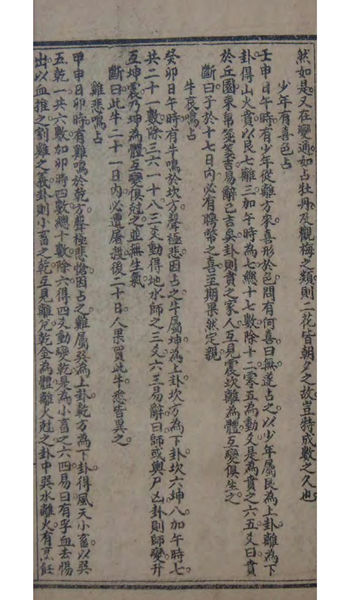 然如是又在變通如占牡丹及觀梅之類則二花皆朝夕之故豈特成數之久也
少年有喜色占
壬申日午時有少年從離方來喜形於色問有何喜曰無遂占之以少年屬艮為上卦離為下
卦得山火賁以艮七離三加午時七總十七數除十二零五為動爻是為賁之六五爻曰賁
於丘園束帛戔戔吝終吉易辭已吉矣卦則賁之家人互見震坎離為體互變俱生之
斷曰子於十七日內必有聘幣之喜至期果然定親
牛哀鳴占
癸卯日午時有牛鳴於坎方聲極悲因占之牛屬坤為上卦坎方為下卦坎六坤八加午時七
共二十一數除三六一十八三爻動得地水師之三爻六三易辭曰師或輿尸凶卦則師變升
互坤震乃坤為體互變俱尅之並無生氣
斷曰此牛二十一日內必遭屠殺後二十日人果買此牛悉皆異之
雞悲鳴占
甲申日卯時有雞鳴於乾方聲極悲愴因占之雞屬巽為上卦乾方為下卦得風天小畜以巽
五乾一共六數加卯時四數總十數除六得四爻動變乾是為小畜之六四易曰有孚血去惕
出以血推之割雞之義卦則小畜之乾互見離兌乾金為體離火尅之卦中巽木離火有烹飪